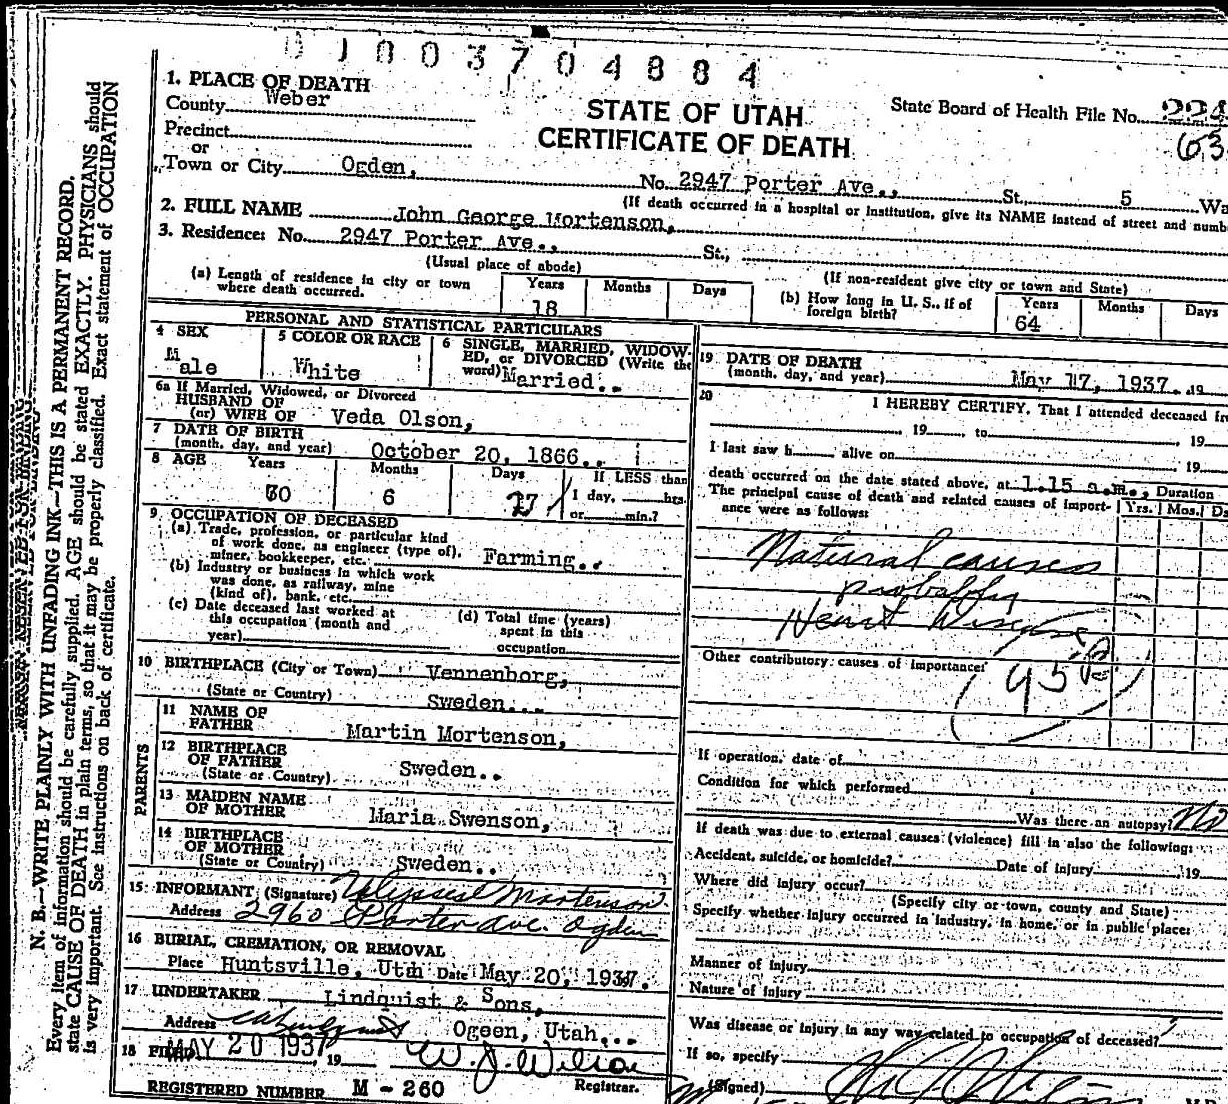 0 1 0 0 3 7 0 4 8 8 4
1. PLACE OF DEATH
County Weber
STATE OF UTAH
CERTIFICATE OF DEATH
State Board of Health File No.
Precinct
or
Town or City Ogden, No. 2947 Porter Ave., St., 5 Wa
(If death occurred in a hospital or institution, give its NAME instead of street and numbe
2. FULL NAME John George Mortenson,
3. Residence: No. 2947 Porter Ave., St.,
(Usual place of abode)
(If non-resident give city or town and State)
(a) Length of residence in city or town where death occurred. Years 18 Months Days
(b) How long in U. S., if of foreign birth? Years 64 Months Days
PERSONAL AND STATISTICAL PARTICULARS
4 SEX Male
5 COLOR OR RACE White
6 SINGLE, MARRIED, WIDOW-
ED, or DIVORCED (Write the
word) Married..
6a If Married, Widowed, or Divorced
HUSBAND OF
(or) WIFE OF Veda Olson,
7 DATE OF BIRTH
(month, day, and year) October 20, 1866..
8 AGE Years 70 Months 6 Days 27 If LESS than
1 day, hrs.
or min.?
9 OCCUPATION OF DECEASED
(a) Trade, profession, or particular kind
of work done, as engineer (type of),
miner, bookkeeper, etc. Farming..
(b) Industry or business in which work
was done, as railway, mine
(kind of), bank, etc.
(c) Date deceased last worked at
this occupation (month and
year)
(d) Total time (years)
spent in this
occupation
10 BIRTHPLACE (City or Town) Vennenborg,
(State or Country) Sweden...
PARENTS
11 NAME OF
FATHER Martin Mortenson,
12 BIRTHPLACE
OF FATHER
(State or Country) Sweden..
13 MAIDEN NAME
OF MOTHER Maria Swenson,
14 BIRTHPLACE
OF MOTHER
(State or Country) Sweden..
15 INFORMANT (Signature) Ulysses Mortenson
Address 2960 Porter Ave. Ogden
16 BURIAL, CREMATION, OR REMOVAL
Place Huntsville, Utah Date May 20, 1937.
17 UNDERTAKER Lindquist & Sons,
Address Ogeen, Utah...
18 FILED MAY 20 1937 19 W. J. Wilson
Registrar.
REGISTERED NUMBER M - 260
19 DATE OF DEATH
(month, day, and year) May 17, 1937. 19
20 I HEREBY CERTIFY, That I attended deceased fr
, 19 , to , 19
I last saw h alive on , 19
death occurred on the date stated above, at 1.15 a.m.,
The principal cause of death and related causes of import-
ance were as follows:
Duration
Yrs. Mos. Ds
Natural causes
probably
Heart Disease
Other contributory causes of importance:
If operation, date of
Condition for which performed
Was there an autopsy? No
If death was due to external causes (violence) fill in also the following:
Accident, suicide, or homicide? Date of Injury 19
Where did injury occur?
(Specify city or town, county and State)
Specify whether injury occurred in industry, in home, or in public place:
Manner of Injury
Nature of Injury
Was disease or injury in any way related to occupation of deceased?
If so, specify
(Signed)
N. B.—WRITE PLAINLY WITH UNFADING INK—THIS IS A PERMANENT RECORD.
Every item of information should be carefully supplied. AGE should be stated EXACTLY. PHYSICIANS should
state CAUSE OF DEATH in plain terms, so that it may be properly classified. Exact statement of OCCUPATION
is very important. See instructions on back of certificate.